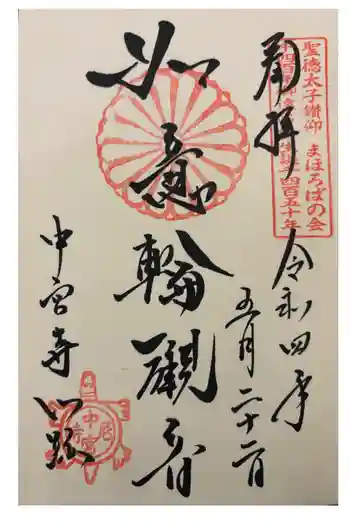 奉拝
令和四年
五月二十二日
如意輪觀音
中宮寺門跡
聖徳太子讃仰 まほろばの会